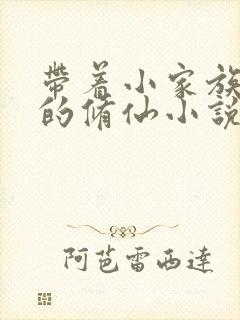 帶着小家族
的脩仙小說
阿芭雷西達